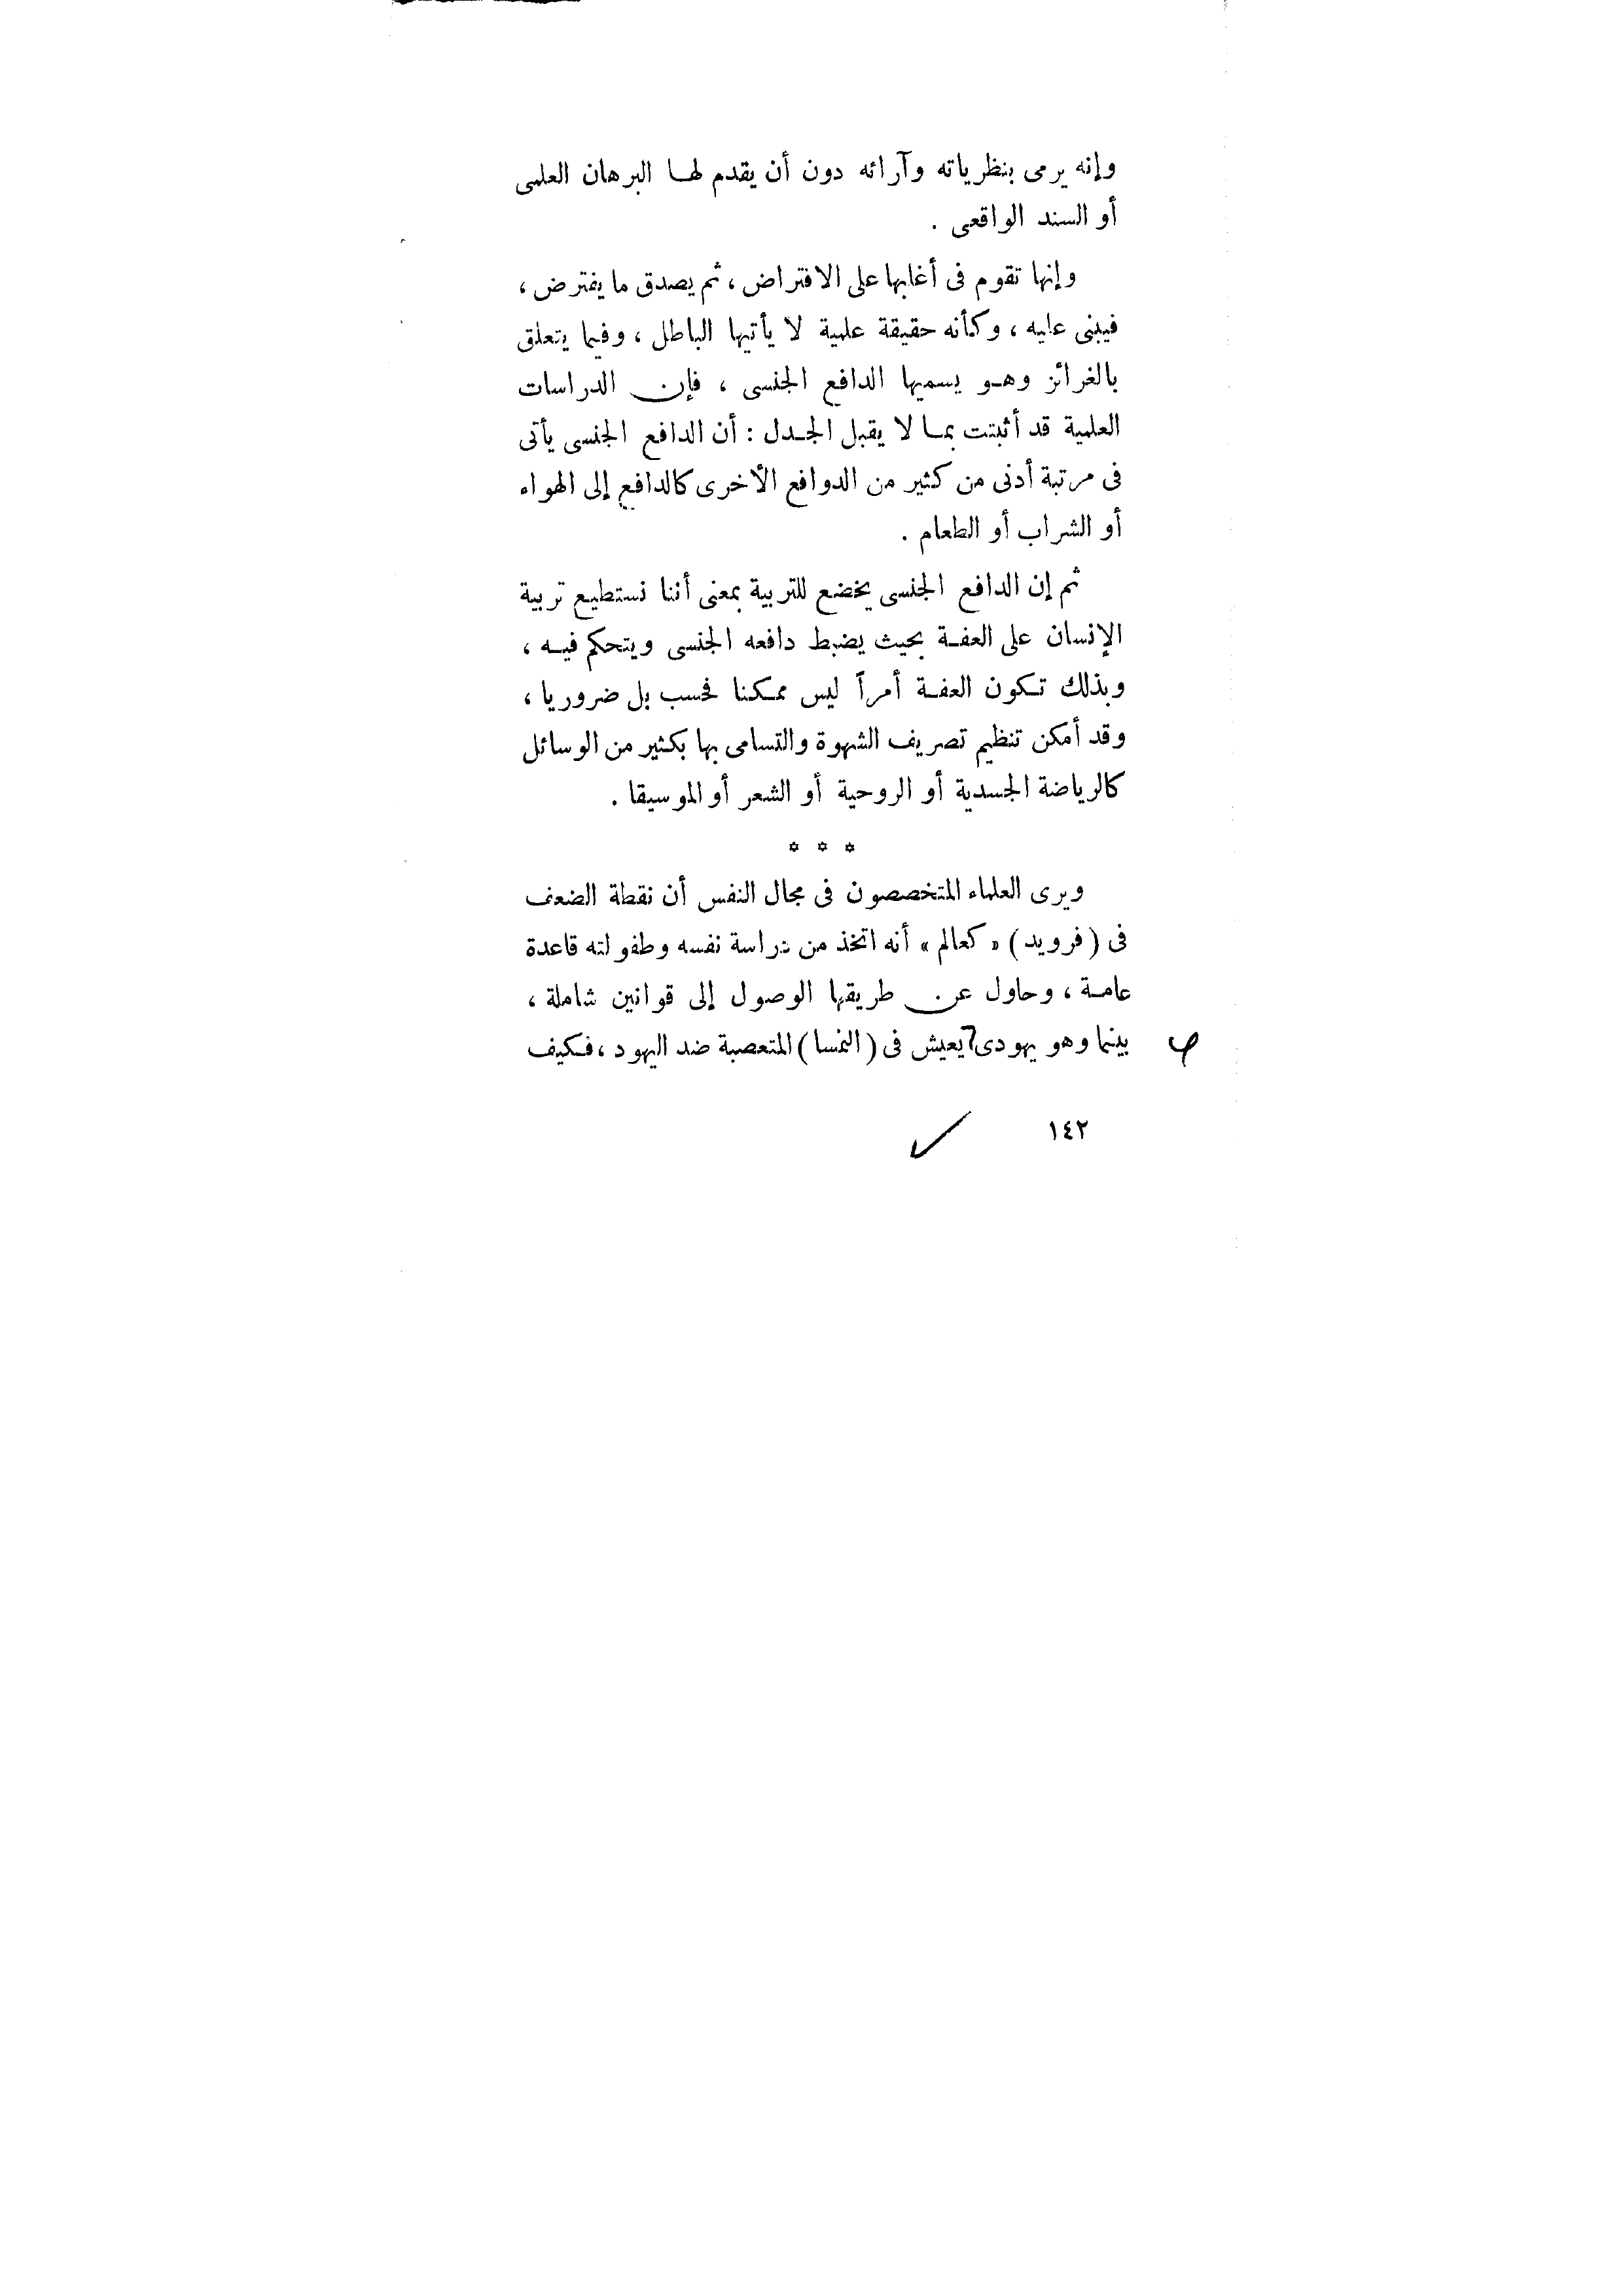 وإنه يرمى بنظرياته وآرائه دون أن يقدم لها البرهان العلمى
أو السند الواقعى .
وإنها تقوم فى أغلبها على الافتراض ، ثم يصدق ما يفترض ،
فيبنى عليه ، وكأنه حقيقة علمية لا يأتيها الباطل ، وفيما يتعلق
بالغرائز وهو يسميها الدافع الجنسى ، فإن الدراسات
العلمية قد أثبتت بما لا يقبل الجدل : أن الدافع الجنسى يأتى
فى مرتبة أدنى من كثير من الدوافع الأخرى كالدافع إلى الهواء
أو الشراب أو الطعام .
ثم إن الدافع الجنسى يخضع للتربية بمعنى أننا نستطيع تربية
الإنسان على العفة بحيث يضبط دافعه الجنسى ويتحكم فيه ،
وبذلك تكون العفة أمراً ليس ممكنا فحسب بل ضروريا ،
وقد أمكن تنظيم تصريف الشهوة والتسامى بها بكثير من الوسائل
كالرياضة الجسدية أو الروحية أو الشعر أو الموسيقا .
* * *
ويرى العلماء المتخصصون فى مجال النفس أن نقطة الضعف
فى (فرويد) « كعالم » أنه اتخذ من دراسة نفسه وطفولته قاعدة
عامة ، وحاول عن طريقها الوصول إلى قوانين شاملة ،
بينما وهو يهودى يعيش فى (النمسا) المتعصبة ضد اليهود ، فكيف
١٤٢